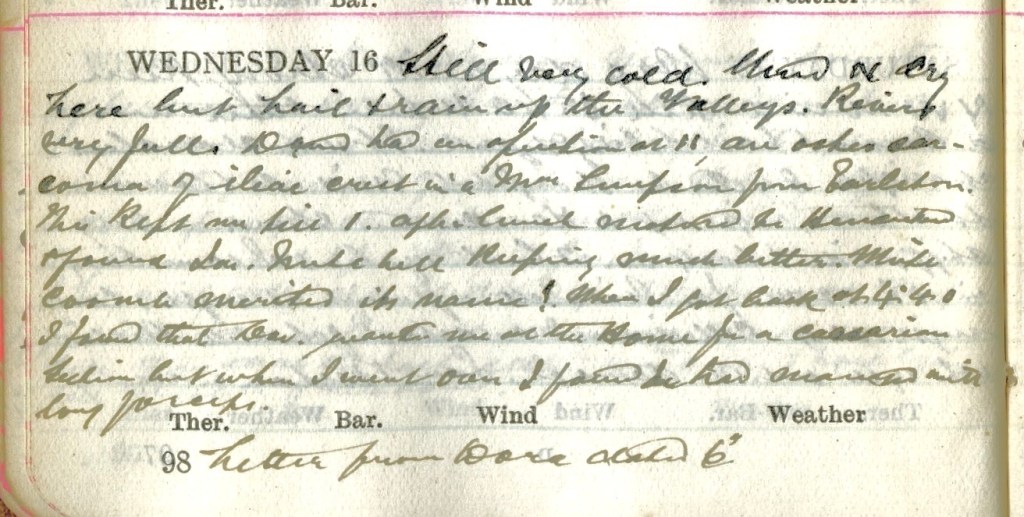 Ther. Bar. Wind Weather
WEDNESDAY 16 Still very cold. Wind N dry
here but hail & rain up the Valleys. Rivers
very full. had an operation at 11, an osteo sar-
coma of iliac crest in a Mrs Simpson from Earlston.
This kept me till 1. after lunch motored to
& found Mitchell keeping much better.
coombe merited its name! When I got back at 4.40
I found that wanted me at the Home for a caesarian
section but when I went over I found he had managed with
long forceps.
Ther. Bar. Wind Weather
98 Letter from Dora dated 6th